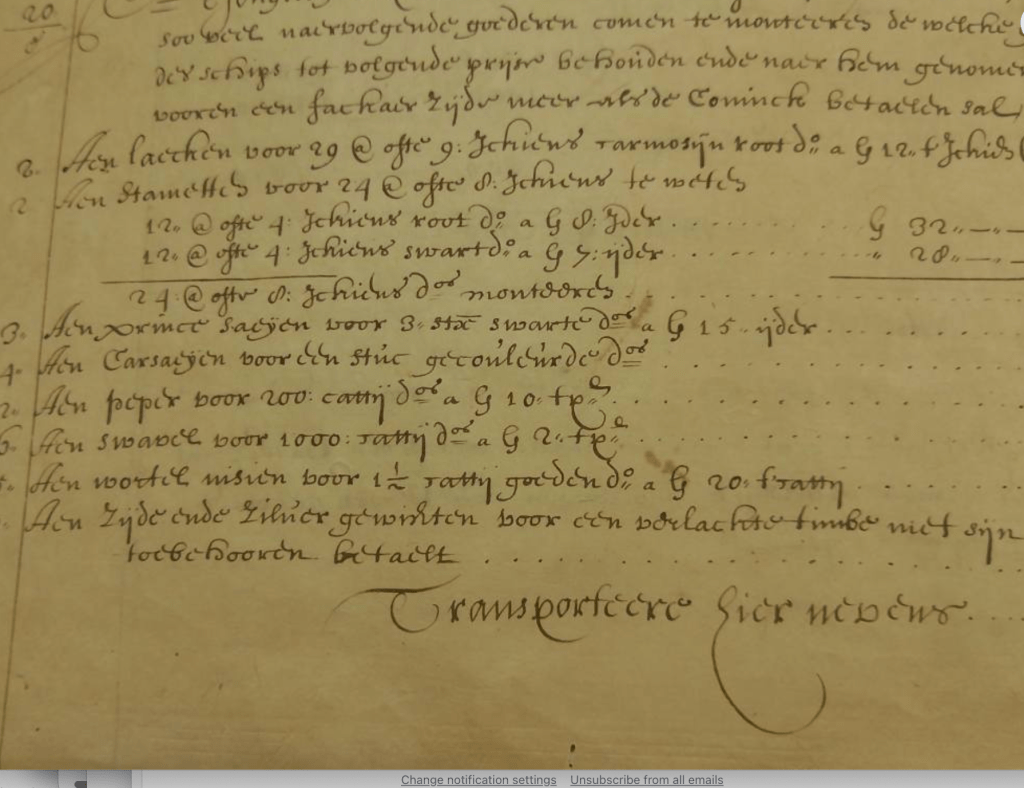 20
soo veel naervolgende goederen comen te monteeren de welcke
der schips tot volgende prijse behouden ende naer hem genomen
vooren een fackaer Zijde meer als de Coninck betaelen sal
2. Aen laecken voor 29 @ ofte 9: Ickiens carmosijn root do. a G 12. t Ickien
2 Aen Stametten voor 24 @ ofte 8: Ickiens te weten
12. @ ofte 4: Ickiens root do. a G 8: Ider . . . . . . . . G 32. — —
12. @ ofte 4: Ickiens swart do. a G 7: ijder . . . . . . . . " 28. — —
24 @ ofte 8: Ickiens dos monteeren . . . . . . . .
3. Aen prince saeyen voor 3. stx swarte dos a G 15. ijder . . . . . . . .
4. Aen Carsaeyen voor een stuc gecouleurde dos . . . . . . . .
2. Aen peper voor 200: cattij dos a G 10. t p . . . . . . . .
6. Aen swavel voor 1000: cattij dos a G 2. t p . . . . . . . .
Aen wortel nisien voor 1½ cattij goeden do. a G 20. t cattij . . . . . . . .
Aen Zijde ende Zilver gewichten voor een verlackte timbe met sijn
toebehooren betaelt . . . . . . . .
Transporteere hier nevens . . .
Change notification settings Unsubscribe from all emails